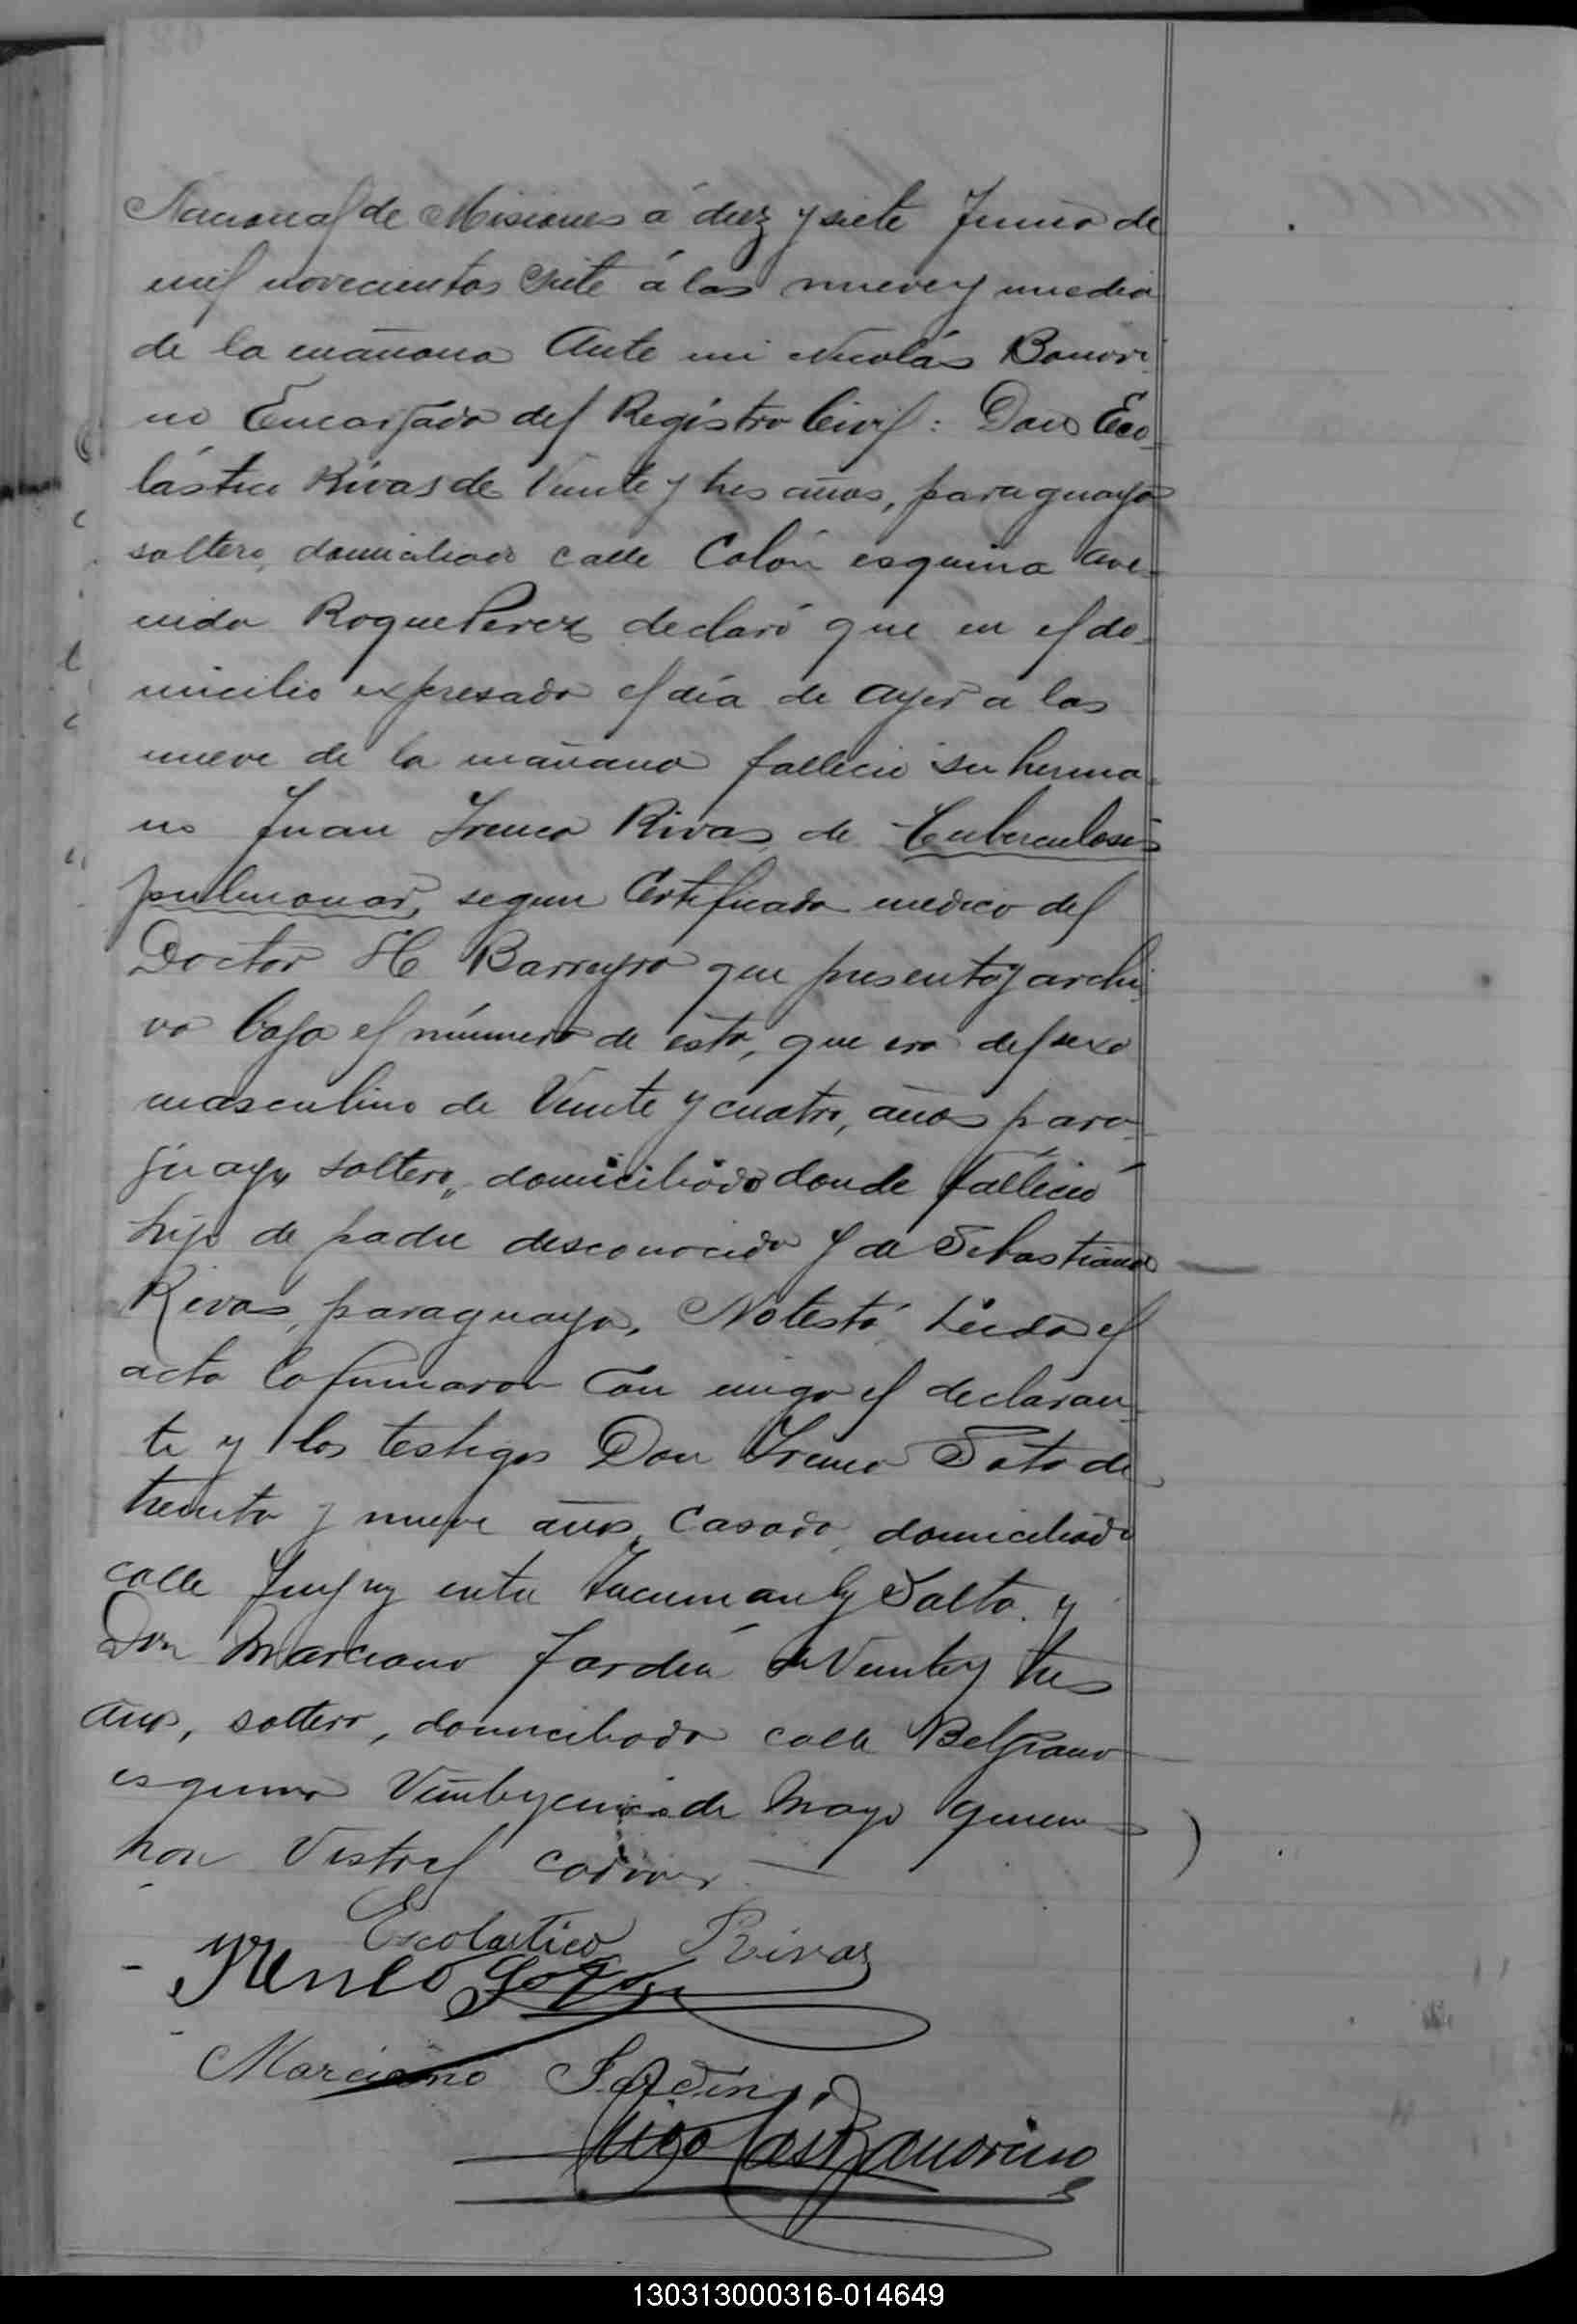 Nacional de Misiones á diez y siete Junio de
mil novecientos siete á las nueve y media
de la mañana Ante mi Nicolás Bonori
no Encargado del Registro Civil: Don Esco
lástico Rivas de Veinte y tres años, paraguayo
soltero, domiciliado calle Colón esquina Ave-
nida Roque Perez declaró que en el do-
micilio expresado el día de ayer a las
nueve de la mañana falleció su herma-
no Juan Ireneo Rivas de Tuberculosis
pulmonar, segun Certificado medico del
Doctor H Barreyro que presentó y archi
vo bajo el número de esta, que era del sexo
masculino de Veinte y cuatro, años para-
guayo soltero, domiciliado donde falleció
hijo de padre desconocido y de Sebastiana
Rivas, paraguaya, No testó Leida el
acta la firmaron Con migo el declaran-
te y los testigos Don Ireneo Soto de
treinta y nueve años, Casado, domiciliado
calle Jujuy entre Tucuman y Salta y
Don Marciano Jardín de Veinte y tres
años, soltero, domiciliado calle Belgrano
esquina Veinte y cinco de Mayo quienes
han Visto el cadaver
Escolastico Rivas
Yreneo Soto
Marciano Jardin
Nicolás Bonorino
130313000316-014649